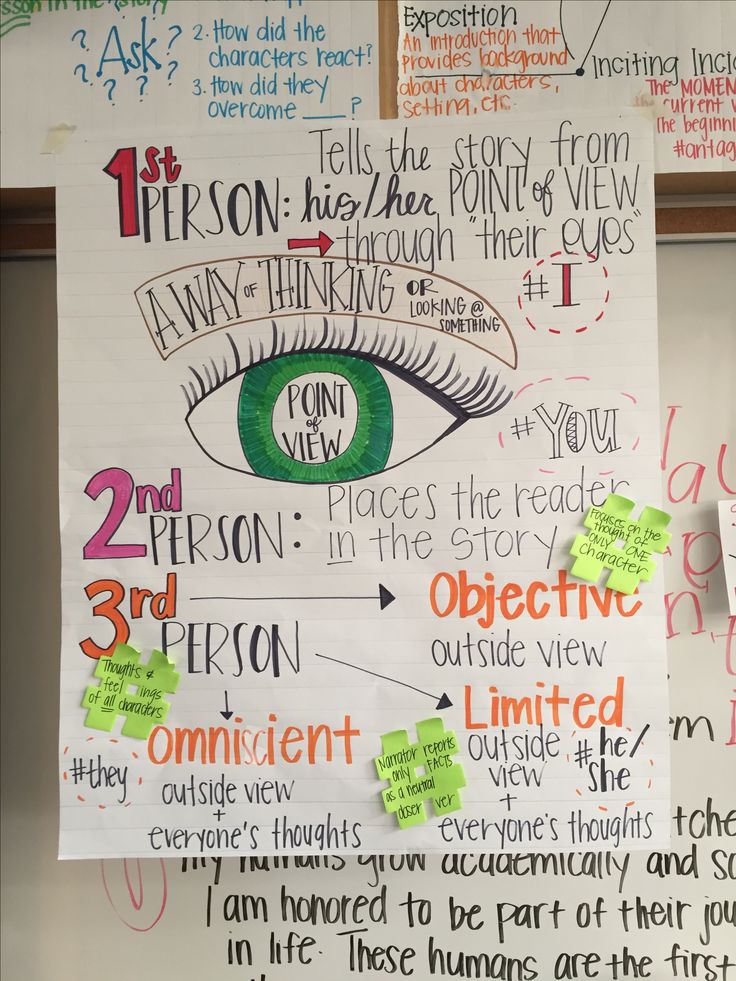 sson in the story
Ask
? ? ? ? ? ? ? ?
2. How did the
characters react?
3. How did they
overcome ___?
Exposition
An introduction that
provides background
about characters,
setting, etc.
Inciting
The
current
The
1st PERSON:
Tells the story from
his/her POINT of VIEW
through "their eyes"
A WAY OF THINKING OR
LOOKING @
SOMETHING
#I
POINT
of
VIEW
#You
2nd PERSON:
Places the reader
in the Story
Focuses on the
thought of
ONLY ONE
character
3rd PERSON
Objective
outside view
Thoughts &
feelings
of all characters
Omniscient
#they
outside view
+
everyone's thoughts
Narrator reports
only FACTS
as a neutral
observer
Limited
outside
view
+
everyone's thoughts
#he/
she
my humans grow academically and
I am honored to be part of their
in life. These humans are the first